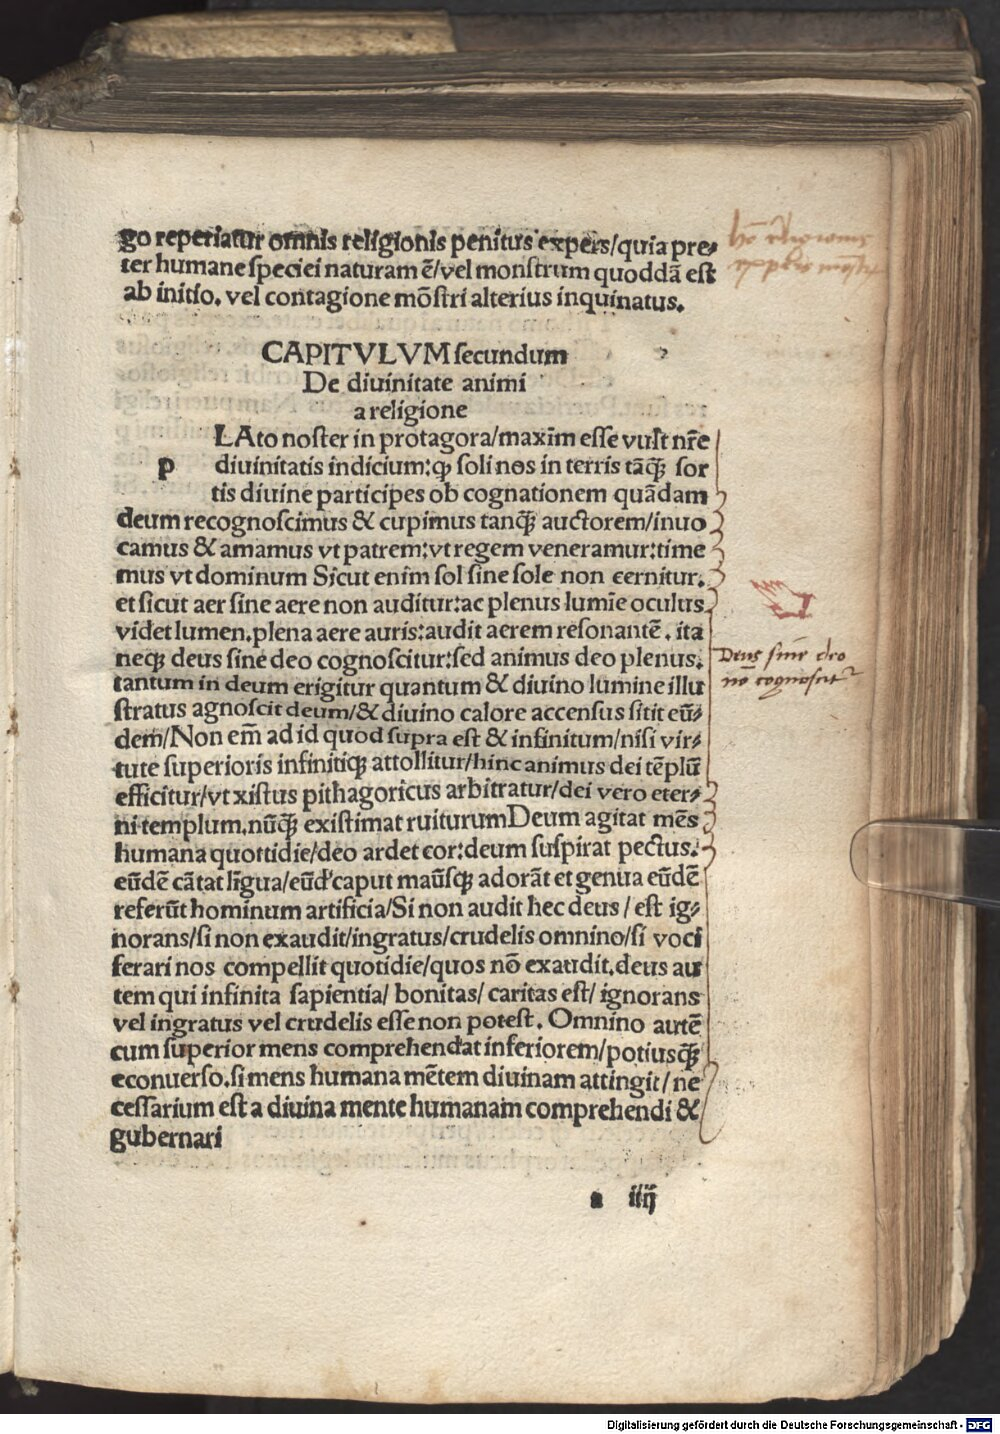 go reperiatur omnis religionis penitus expers/quia pre⸗
ter humane speciei naturam ē/vel monstrum quoddā est
ab initio. vel contagione mōstri alterius inquinatus.
CAPITVLVM secundum
De diuinitate animi
a religione
LAto noster in protagora/maxim esse vult nr̄e
p diuinitatis indicium:ꝙ soli nos in terris tāꝗ̃ sor
tis diuine participes ob cognationem quādam
deum recognoscimus & cupimus tanꝗ̃ auctorem/inuo
camus & amamus vt patrem:vt regem veneramur:time
mus vt dominum Sicut enim sol sine sole non cernitur.
et sicut aer sine aere non auditur:ac plenus lumīe oculus
videt lumen.plena aere auris:audit aerem resonantē. ita
neqꝫ deus sine deo cognoscitur:sed animus deo plenus.
tantum in deum erigitur quantum & diuino lumine illu
stratus agnoscit deum/& diuino calore accensus sitit eū⸗
dem/Non em̄ ad id quod supra est & infinitum/nisi vir⸗
tute superioris infinitiqꝫ attollitur/hinc animus dei tēplū
efficitur/vt xistus pithagoricus arbitratur/dei vero eter⸗
ni templum.nūꝗ̃ existimat ruiturum Deum agitat mēs
humana quottidie/deo ardet cor:deum suspirat pectus.
eūdē cātat līgua/eūdē caput manūsqꝫ adorāt et genua eūdē
referūt hominum artificia/Si non audit hec deus / est ig⸗
norans/si non exaudit/ingratus/crudelis omnino/si voci
ferari nos compellit quotidie/quos nō exaudit.deus au
tem qui infinita sapientia/ bonitas/ caritas est/ ignorans
vel ingratus vel crudelis esse non potest. Omnino autē
cum superior mens comprehendat inferiorem/potiusꝗ̃
econuerso.si mens humana mētem diuinam attingit/ ne
cessarium est a diuina mente humanam comprehendi &
gubernari
a iiij
Deus sine deo
nō cognoscitr
Digitalisierung gefördert durch die Deutsche Forschungsgemeinschaft - DFG